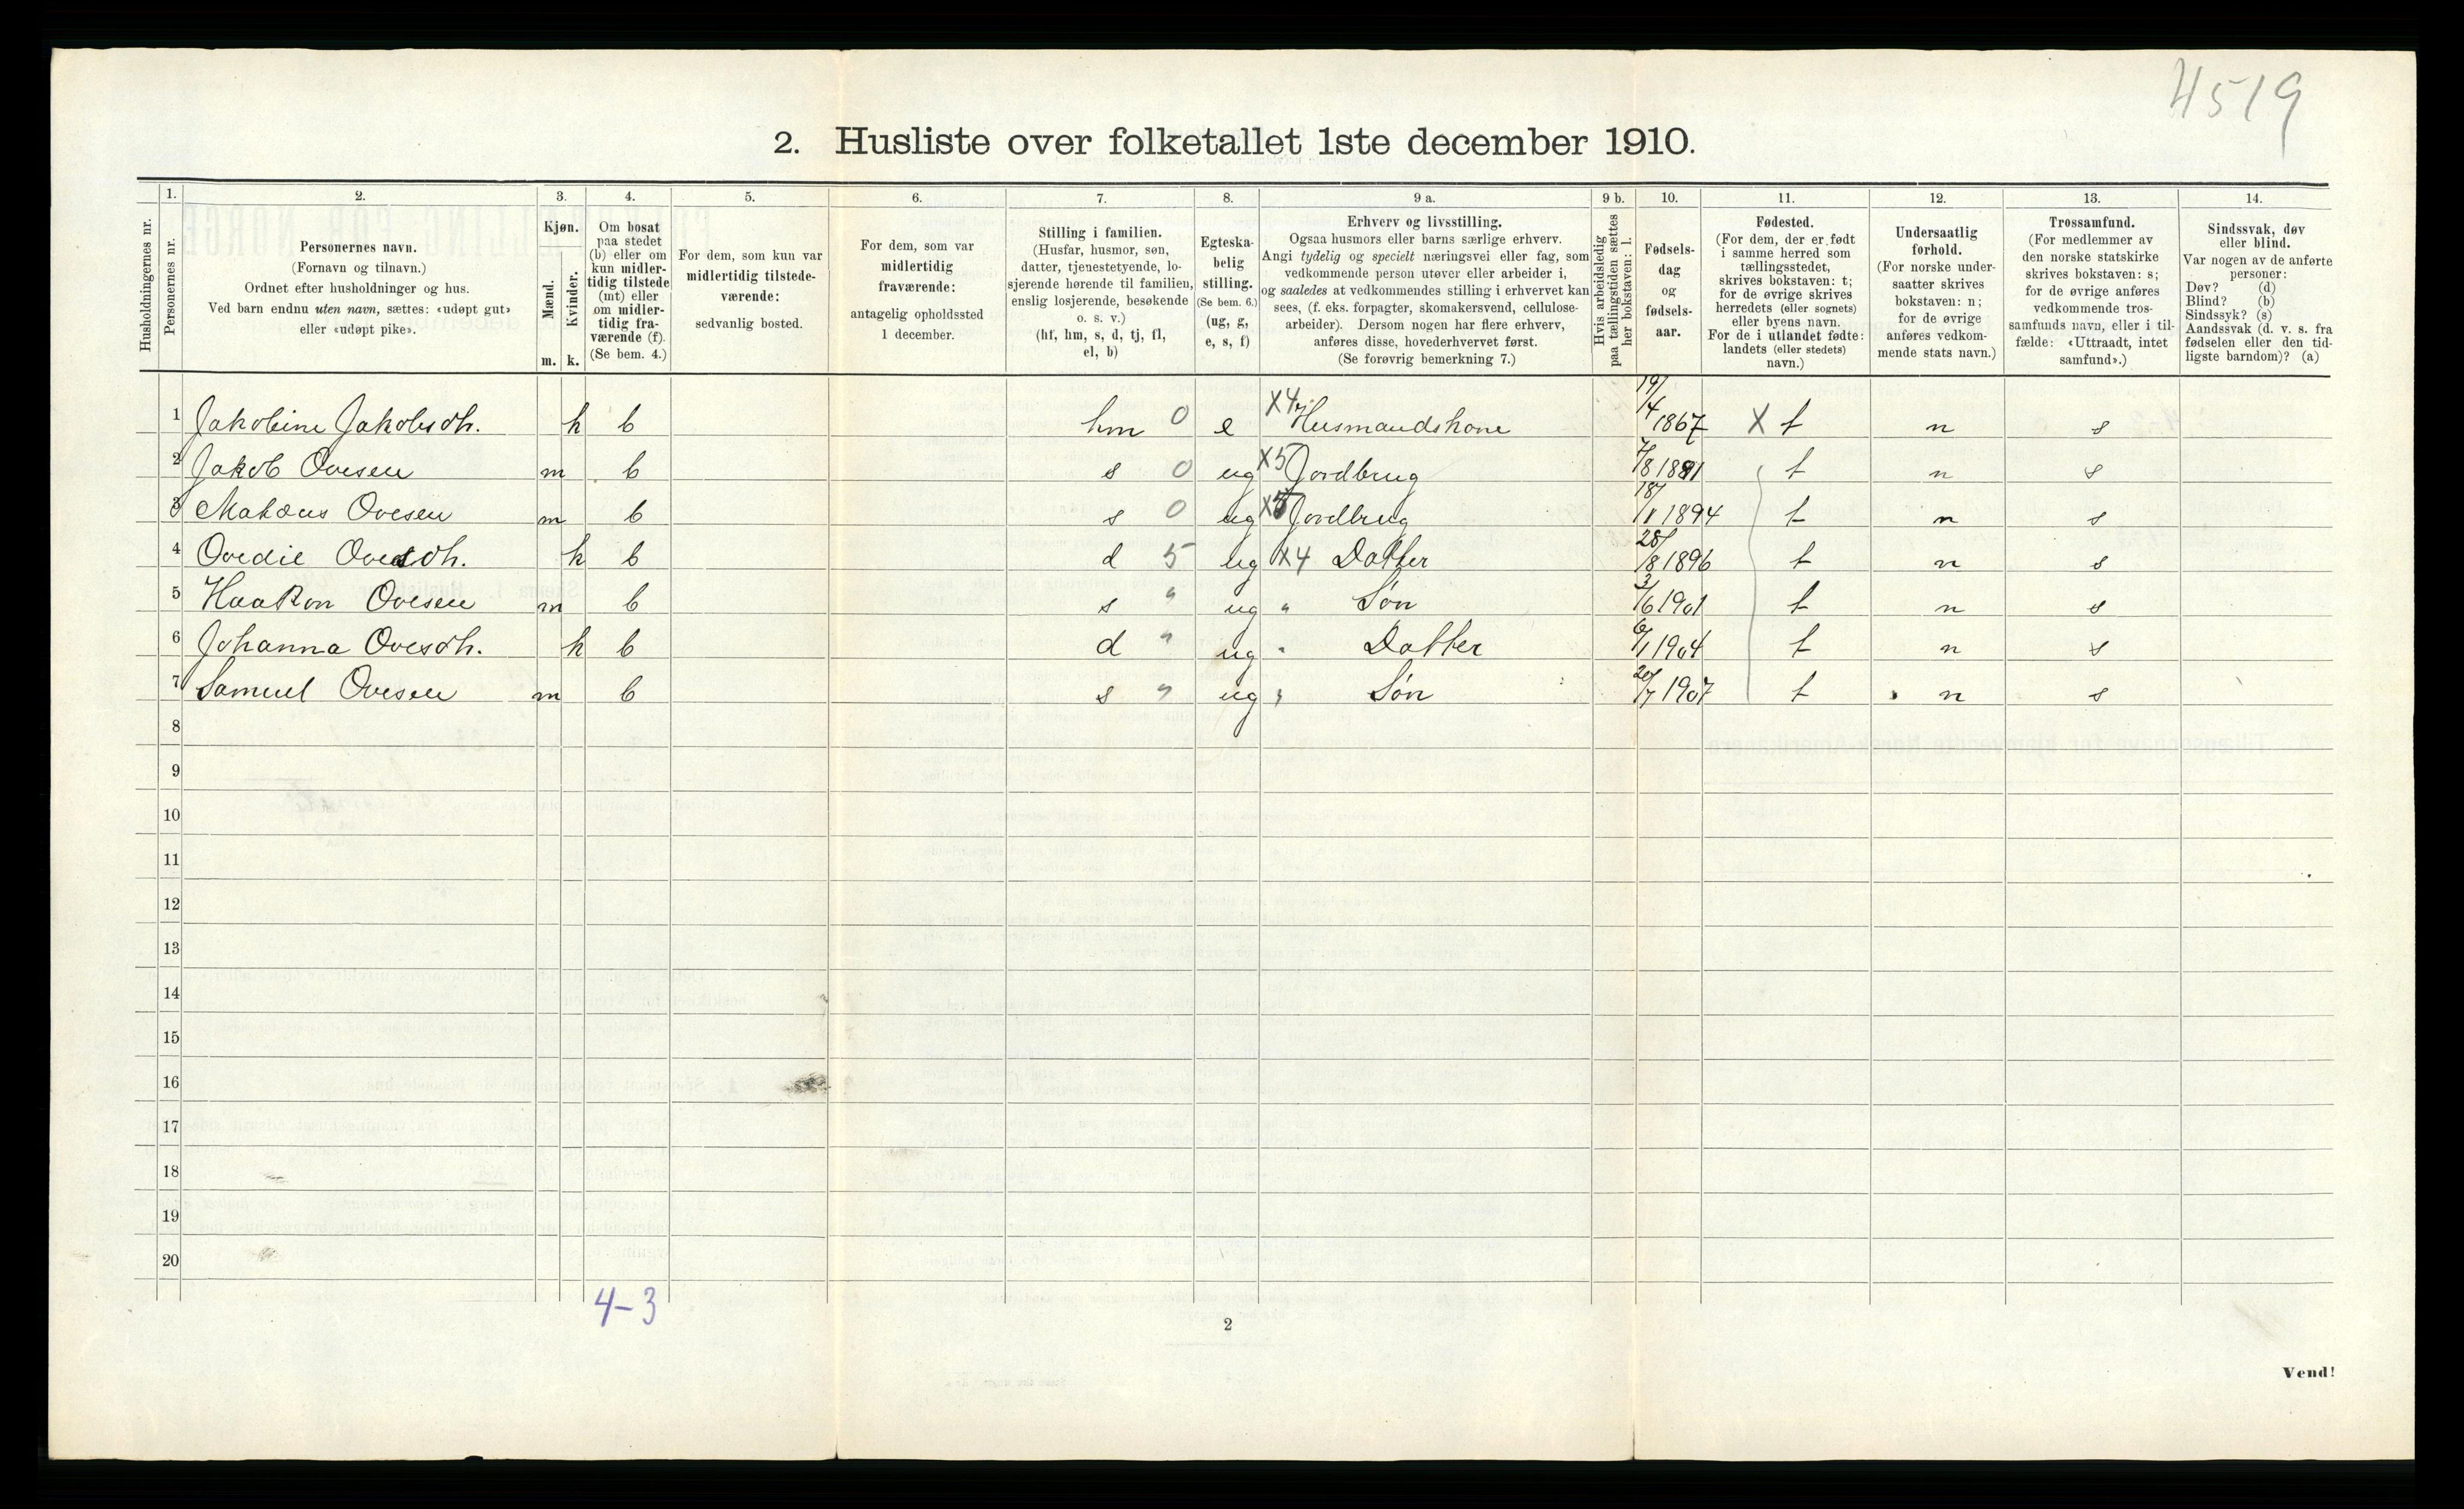 4519
2. Husliste over folketallet 1ste december 1910.
Husholdningernes nr.
1.
Personernes nr.
2.
Personernes navn.
(Fornavn og tilnavn.)
Ordnet efter husholdninger og hus.
Ved barn endnu uten navn, sættes: «udøpt gut»
eller «udøpt pike».
3.
Kjøn.
Mænd.
Kvinder.
m. k.
4.
Om bosat
paa stedet
(b) eller om
kun midler-
tidig tilstede
(mt) eller
om midler-
tidig fra-
værende (f).
(Se bem. 4.)
5.
For dem, som kun var
midlertidig tilstede-
værende:
sedvanlig bosted.
6.
For dem, som var
midlertidig
fraværende:
antagelig opholdssted
1 december.
7.
Stilling i familien.
(Husfar, husmor, søn,
datter, tjenestetyende, lo-
sjerende hørende til familien,
enslig losjerende, besøkende
o. s. v.)
(hf, hm, s, d, tj, fl,
el, b)
8.
Egteska-
belig
stilling.
(Se bem. 6.)
(ug, g,
e, s, f)
9 a.
Erhverv og livsstilling.
Ogsaa husmors eller barns særlige erhverv.
Angi tydelig og specielt næringsvei eller fag, som
vedkommende person utøver eller arbeider i,
og saaledes at vedkommendes stilling i erhvervet kan
sees, (f. eks. forpagter, skomakersvend, cellulose-
arbeider). Dersom nogen har flere erhverv,
anføres disse, hovederhvervet først.
(Se forøvrig bemerkning 7.)
9 b.
Hvis arbeidsledig
paa tællingstiden sættes
her bokstaven: l.
10.
Fødsels-
dag
og
fødsels-
aar.
11.
Fødested.
(For dem, der er født
i samme herred som
tællingsstedet,
skrives bokstaven: t;
for de øvrige skrives
herredets (eller sognets)
eller byens navn.
For de i utlandet fødte:
landets (eller stedets)
navn.)
12.
Undersaatlig
forhold.
(For norske under-
saatter skrives
bokstaven: n;
for de øvrige
anføres vedkom-
mende stats navn.)
13.
Trossamfund.
(For medlemmer av
den norske statskirke
skrives bokstaven: s;
for de øvrige anføres
vedkommende tros-
samfunds navn, eller i til-
fælde: «Uttraadt, intet
samfund».)
14.
Sindssvak, døv
eller blind.
Var nogen av de anførte
personer:
Døv? (d)
Blind? (b)
Sindssyk? (s)
Aandssvak (d. v. s. fra
fødselen eller den tid-
ligste barndom)? (a)
1 Jakobine Jakobsdh. k b hm 0 e X4 Husmandskone 19/4 1867 X t n s
2 Jakob Ovesen m b s 0 ug X5 Jordbrug 7/8 1891 t n s
3 Makæus Ovesen m b s 0 ug X5 Jordbrug 18/1 1894 t n s
4 Ovedie Ovesdh. k b d 5 ug X4 Datter 28/8 1896 t n s
5 Haakon Ovesen m b s " ug " Søn 3/6 1901 t n s
6 Johanna Ovesdh. k b d " ug " Datter 6/1 1904 t n s
7 Samuel Ovesen m b s " ug " Søn 20/7 1907 t n s
8
9
10
11
12
13
14
15
16
17
18
19
20
4-3
2
Vend!